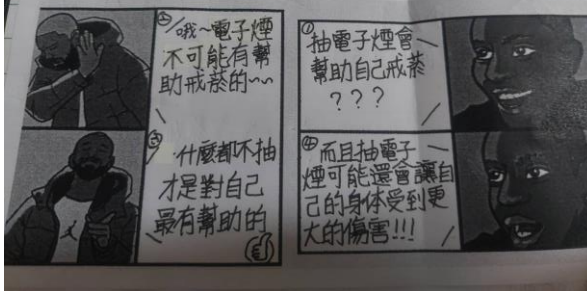 ①抽電子煙會
幫助自己戒菸
???
②哦~電子煙
不可能有幫
助戒菸的~~
③什麼都不抽
才是對自己
最有幫助的
④而且抽電子
煙可能還會讓自
己的身体受到更
大的傷害!!!